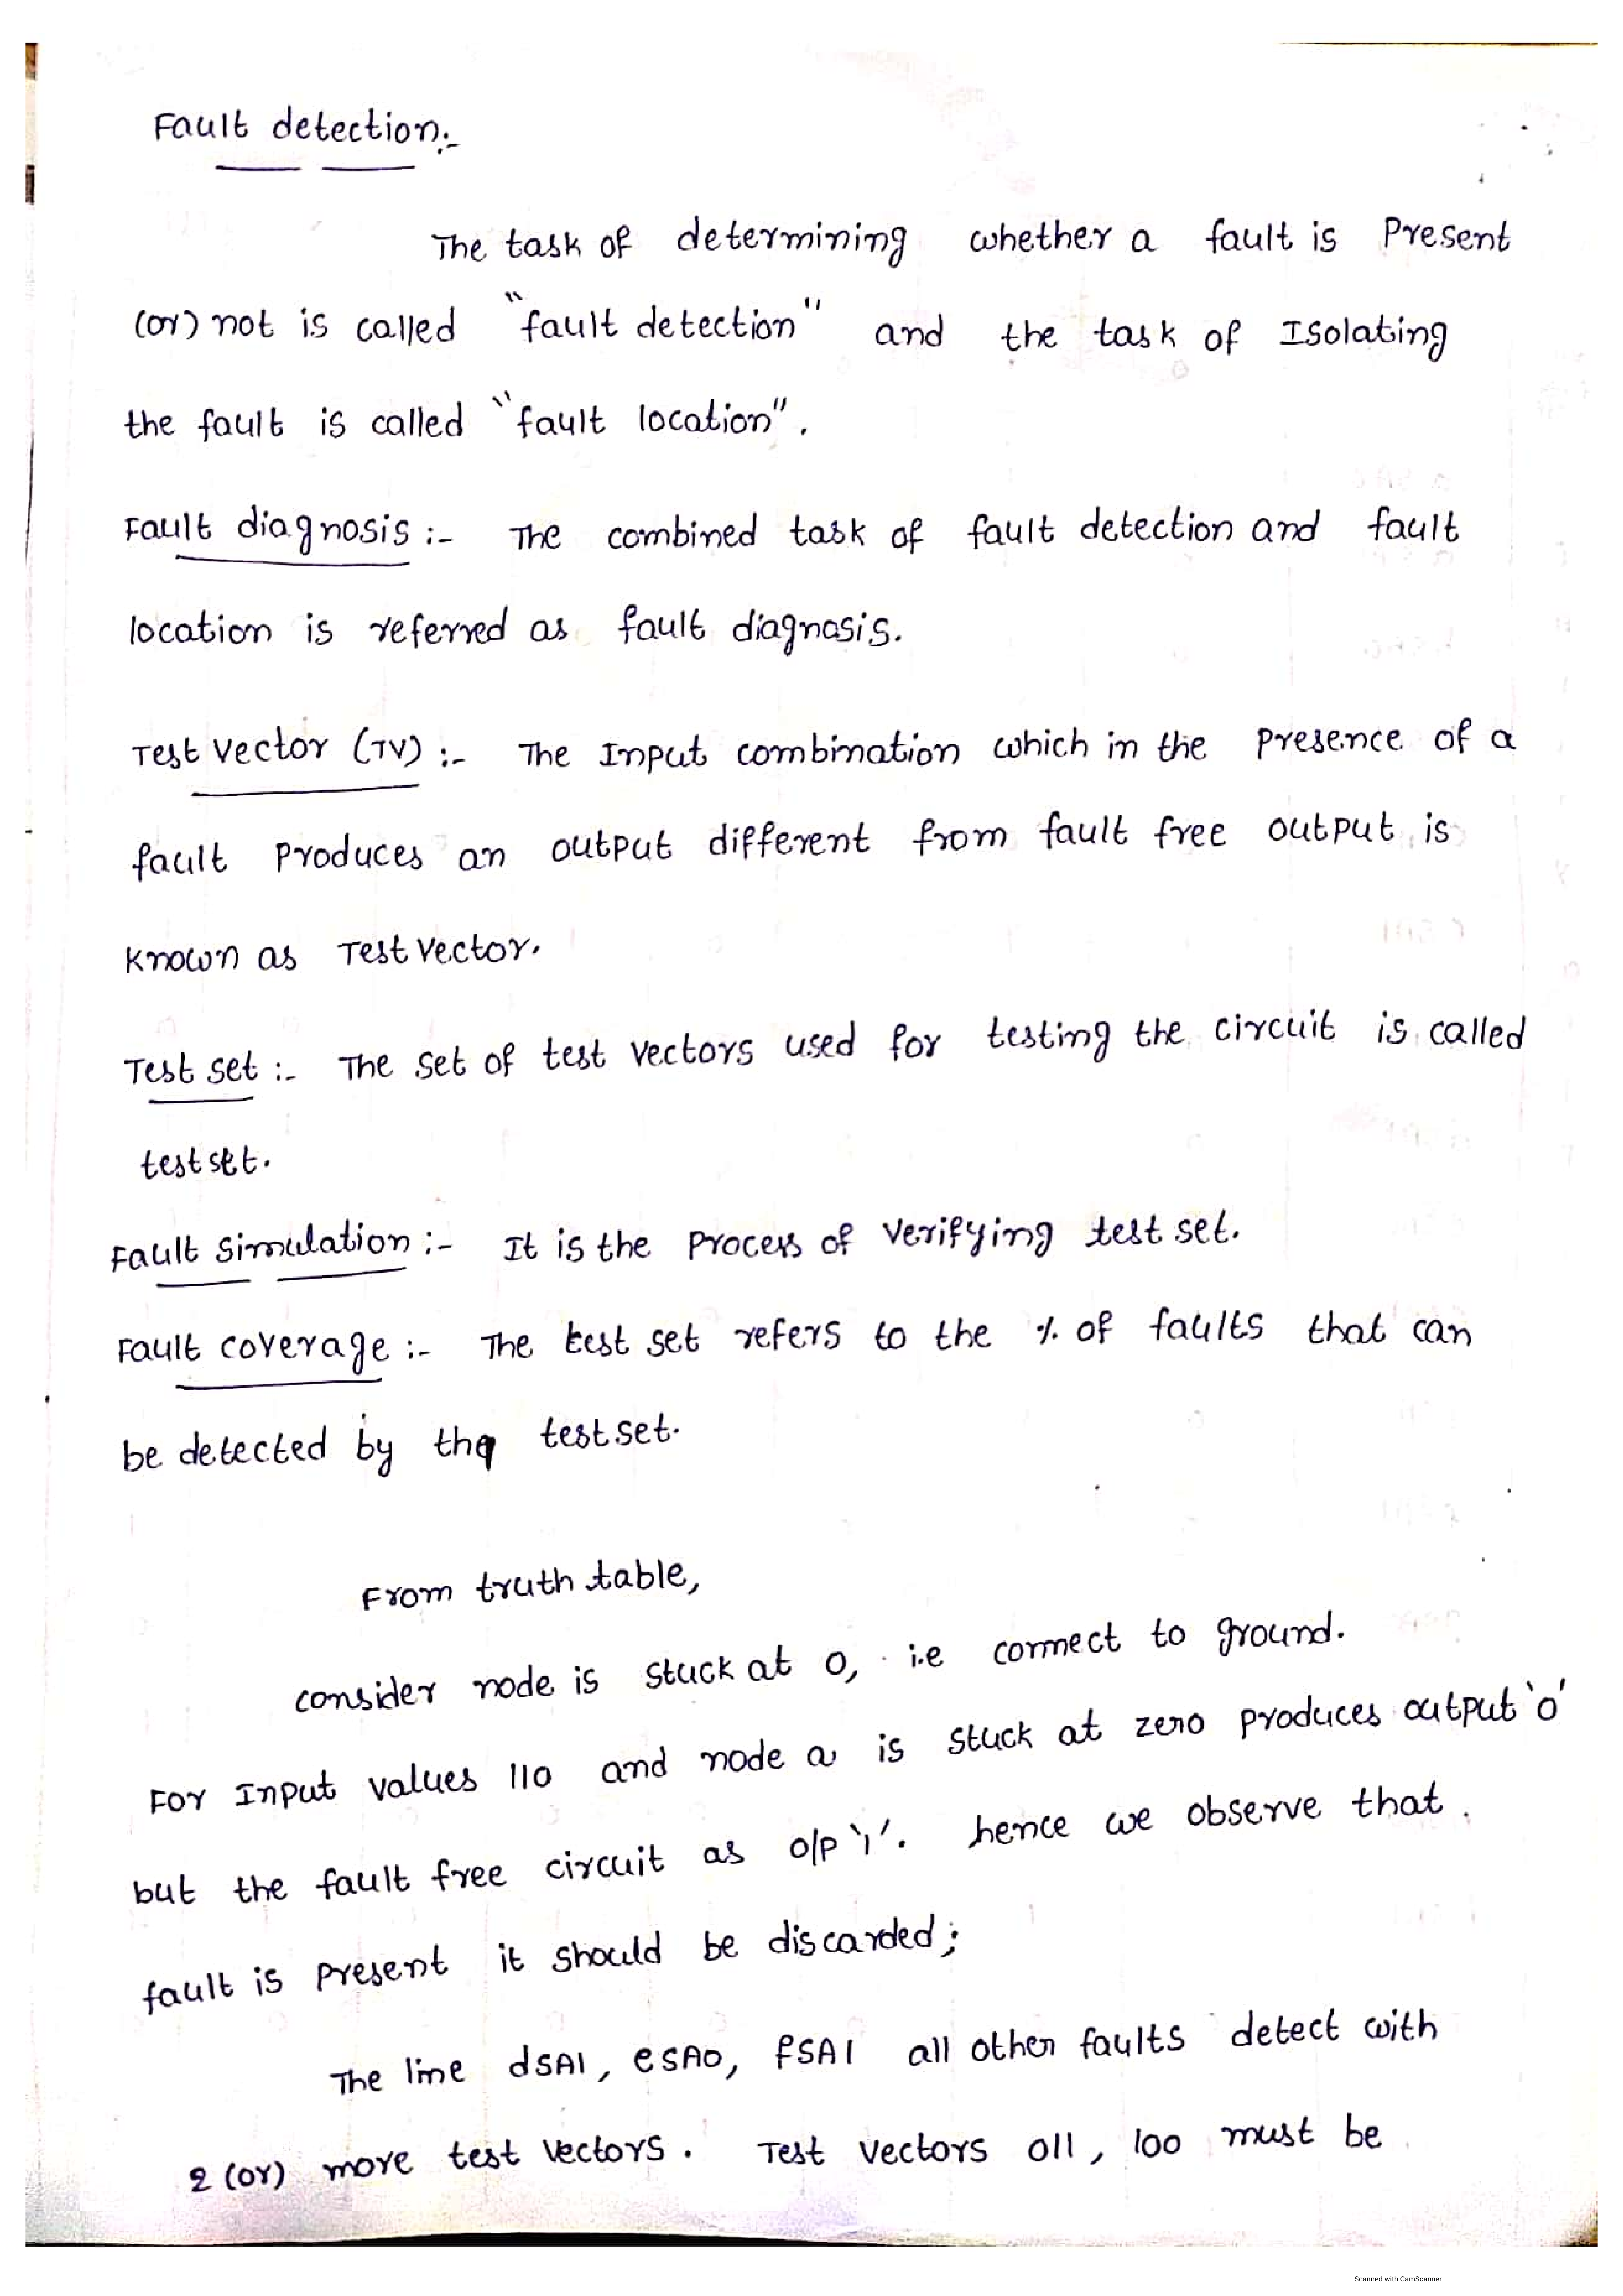 Fault detection:-
The task of determining whether a fault is Present
(or) not is called "fault detection" and the task of Isolating
the fault is called "fault location".
Fault diagnosis :- The combined task of fault detection and fault
location is referred as fault diagnosis.
Test vector (TV) :- The Input combination which in the presence of a
fault produces an output different from fault free output is
known as Test vector.
Test set :- The set of test vectors used for testing the circuit is called
test set.
Fault simulation :- It is the process of verifying test set.
Fault coverage :- The test set refers to the % of faults that can
be detected by the test set.
From truth table,
consider node is stuck at 0, i.e connect to ground.
For Input values 110 and node a is stuck at zero produces output '0'
but the fault free circuit as o/p '1'. hence we observe that
fault is present it should be discarded;
The line dSA1, eSA0, fSA1 all other faults detect with
2 (or) more test vectors. Test vectors 011, 100 must be
Scanned with CamScanner